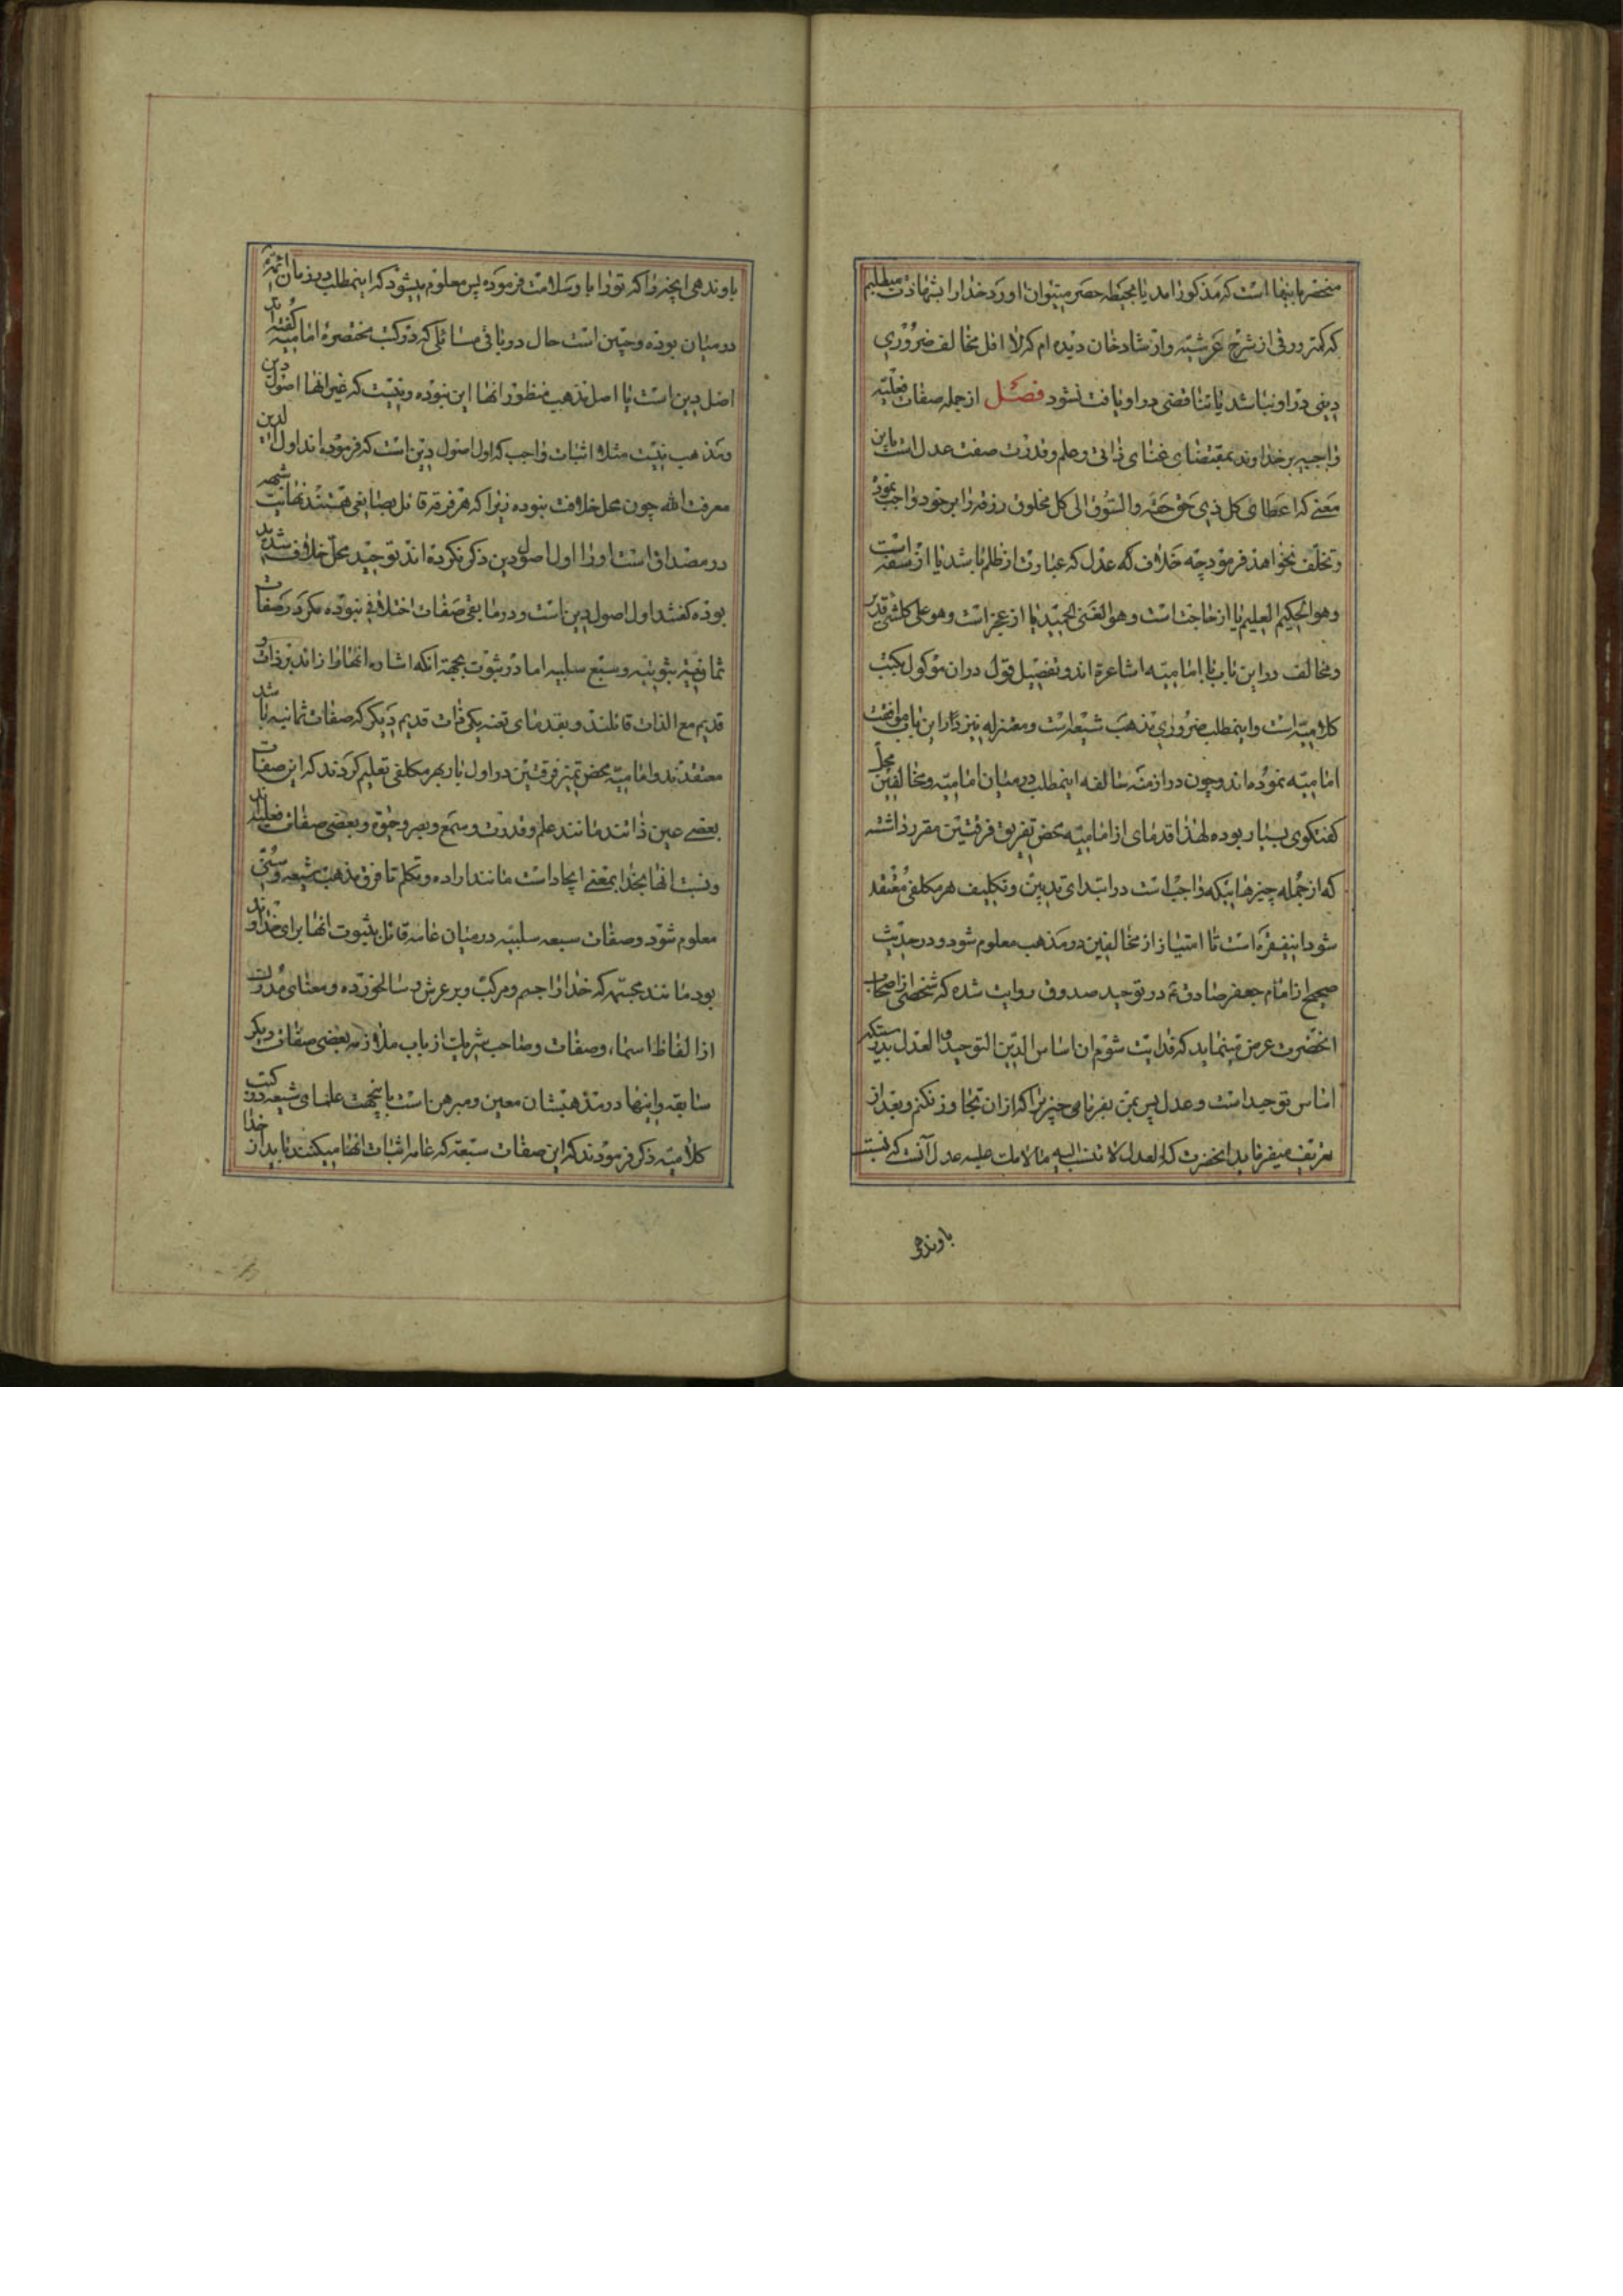 منحصر باینها است که مذکور آمد یا بحیطه حصر میتوان آورد خدا را بشهادت میطلبم
که کمتر ورقی از شرح عرشیه و ارشاد خان دیده‌ام که لااقل مخالف ضروری
دینی در او نباشد یا تناقضی در او یافت نشود فصل از جمله صفات فعلیه
واجبه بر خداوند بمقتضای غنای ذاتی و علم و قدرت صفت عدل است باین
معنی که اعطای کل ذی حق حقه والسوق الی کل مخلوق رزقه را بر خود واجب نمود
و تخلف نخواهد فرمود چه خلاف که عدل که عبارت از ظلم باشد یا از سفه است
وهو الحکیم العلیم یا از حاجت است وهو الغنی الحمید یا از عجز است وهو علی کلشی قدیر
و مخالف در این باب با امامیه اشاعره‌اند و تفصیل قول در ان موکول بکتب
کلامیه است و اینمطلب ضروری مذهب شیعه است و معتزله نیز در این باب موافقت
امامیه نموده‌اند و چون در ازمنه سالفه اینمطلب در میان امامیه و مخالفین محل
گفتگوی بسیار بوده لهذا قدمای از امامیه محض تفریق فرقتین مقرر داشته
که از جمله چیزهائیکه واجب است در ابتدای تدیین و تکلیف هر مکلفی معتقد
شود اینفقره است تا امتیاز از مخالفین در مذهب معلوم شود و در حدیث
صحیح از امام جعفر صادق ع در توحید صدوق روایت شده که شخصی از اصحاب
انحضرت عرض مینماید که فدایت شوم ان اساس الدین التوحید و العدل بدرستیکه
اساس توحید است و عدل پس بمن بفرما می چیزیرا که از ان تجاوز نکنم و بعد از
تعریف میفرماید انحضرت که العدل لا تنسب الیه ما لامک علیه عدل آنست که نسبت
باوندهی
باوندهی انچه را که تو را باو سلامت فرموده پس معلوم میشود که اینمطلب در زمان ائمه
در میان بوده و چنین است حال در باقی مسائلی که در کتب مختصره امامیه گفته‌اند
اصل دین است یا اصل مذهب منظور انها این نبوده و نیست که غیر انها اصول دین
و مذهب نیست مثلا اثبات واجب که اول اصول دین است که فرموده‌اند اول الدین
معرفت الله چون محل خلاف نبوده زیرا که هر فرقه قائل بصانعی هستند نهایت شبهه
در مصداق است او را اول اصول دین ذکر نکرده‌اند توحید محل خلاف شدید
بوده گفتند اول اصول دین است و در مابقی صفات اختلافی نبوده مگر در صفات
ثمانیه ثبوتیه و سبع سلبیه اما در ثبوت بجهة آنکه اشاعره انها را زائد بر ذات و
قدیم مع الذات قائلند و بقدمای تعنه یکی ذات قدیم دیگر که صفات ثمانیه باشد
معتقدند و امامیه محض تمیز فرقتین در اول بار بهر مکلفی تعلیم کردند که این صفات
بعضی عین ذاتند مانند علم و قدرت و سمع و بصر و حیوة و بعضی صفات فعلیند
و نسبت انها بخدا بمعنی ایجاد است مانند اراده و تکلم تا فرق مذهب شیعه و سنی
معلوم شود و صفات سبعه سلبیه در میان عامه قائل بثبوت انها برای خداوند
بود مانند مجتهم که خدا را جسم و مرکب و بر عرش و سالخورده و معنای مدرک
از الفاظ اسماء و صفات و صاحب شریک از باب ملازمه بعضی صفات دیگر
سابقه و اینها در مذهبشان معین و مبرهن است باینجهت علمای شیعه در کتب
کلامیه ذکر فرمودند که این صفات سبعه که عامه اثبات انها میکنند باید از خدا